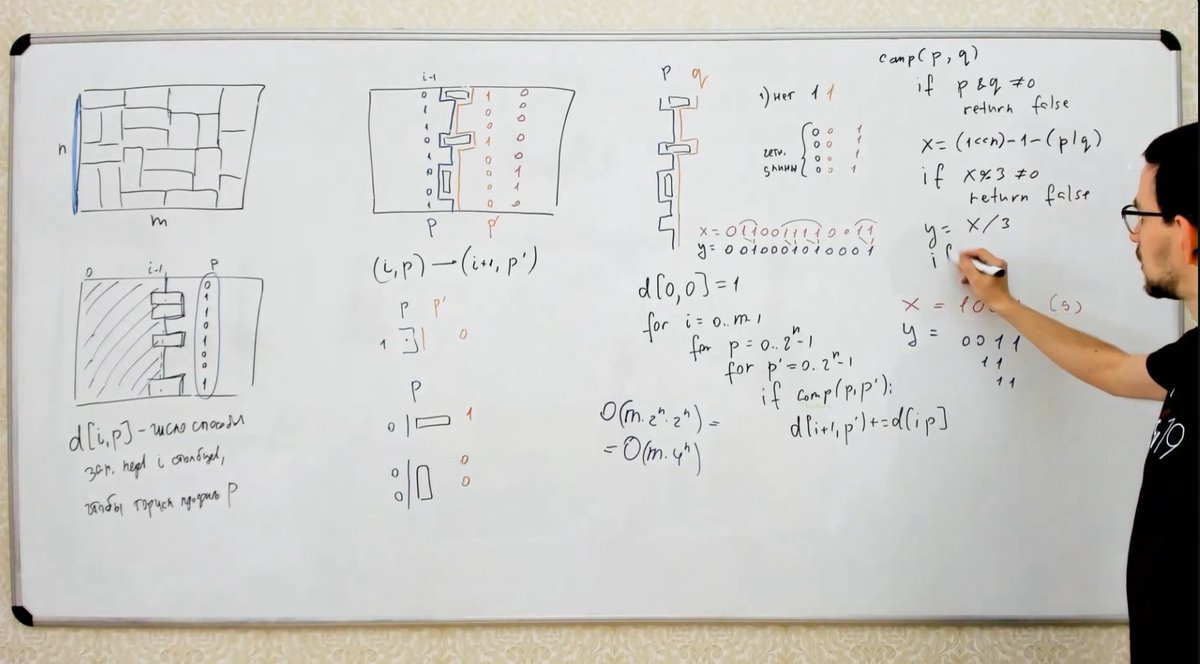 n
m
0
i-1
P
0
1
1
0
1
0
0
1
d[i,p] - число способов
зап. перв i столбцов,
чтобы торчал профиль P
i-1
0
1
0
0
1
0
0
0
1
0
0
0
1
1
0
P
P'
(i,p) → (i+1, p')
P P'
1 0
P
0 1
0 0
0 0
P q
1) нет 1 1
0 0 1
0 0 1
0 0 1
0 0 1
четн.
длины
x = 0110011110011
y = 0010001010001
d[0,0] = 1
for i = 0..m-1
for p = 0..2ⁿ-1
for p' = 0..2ⁿ-1
if comp(p,p'):
d[i+1,p'] += d[i,p]
O(m·2ⁿ·2ⁿ) =
= O(m·4ⁿ)
comp(p,q)
if p & q ≠ 0
return false
x = (1<<n)-1-(p|q)
if x%3 ≠ 0
return false
y = x/3
i
x = 10
y =
0011
11
11
19